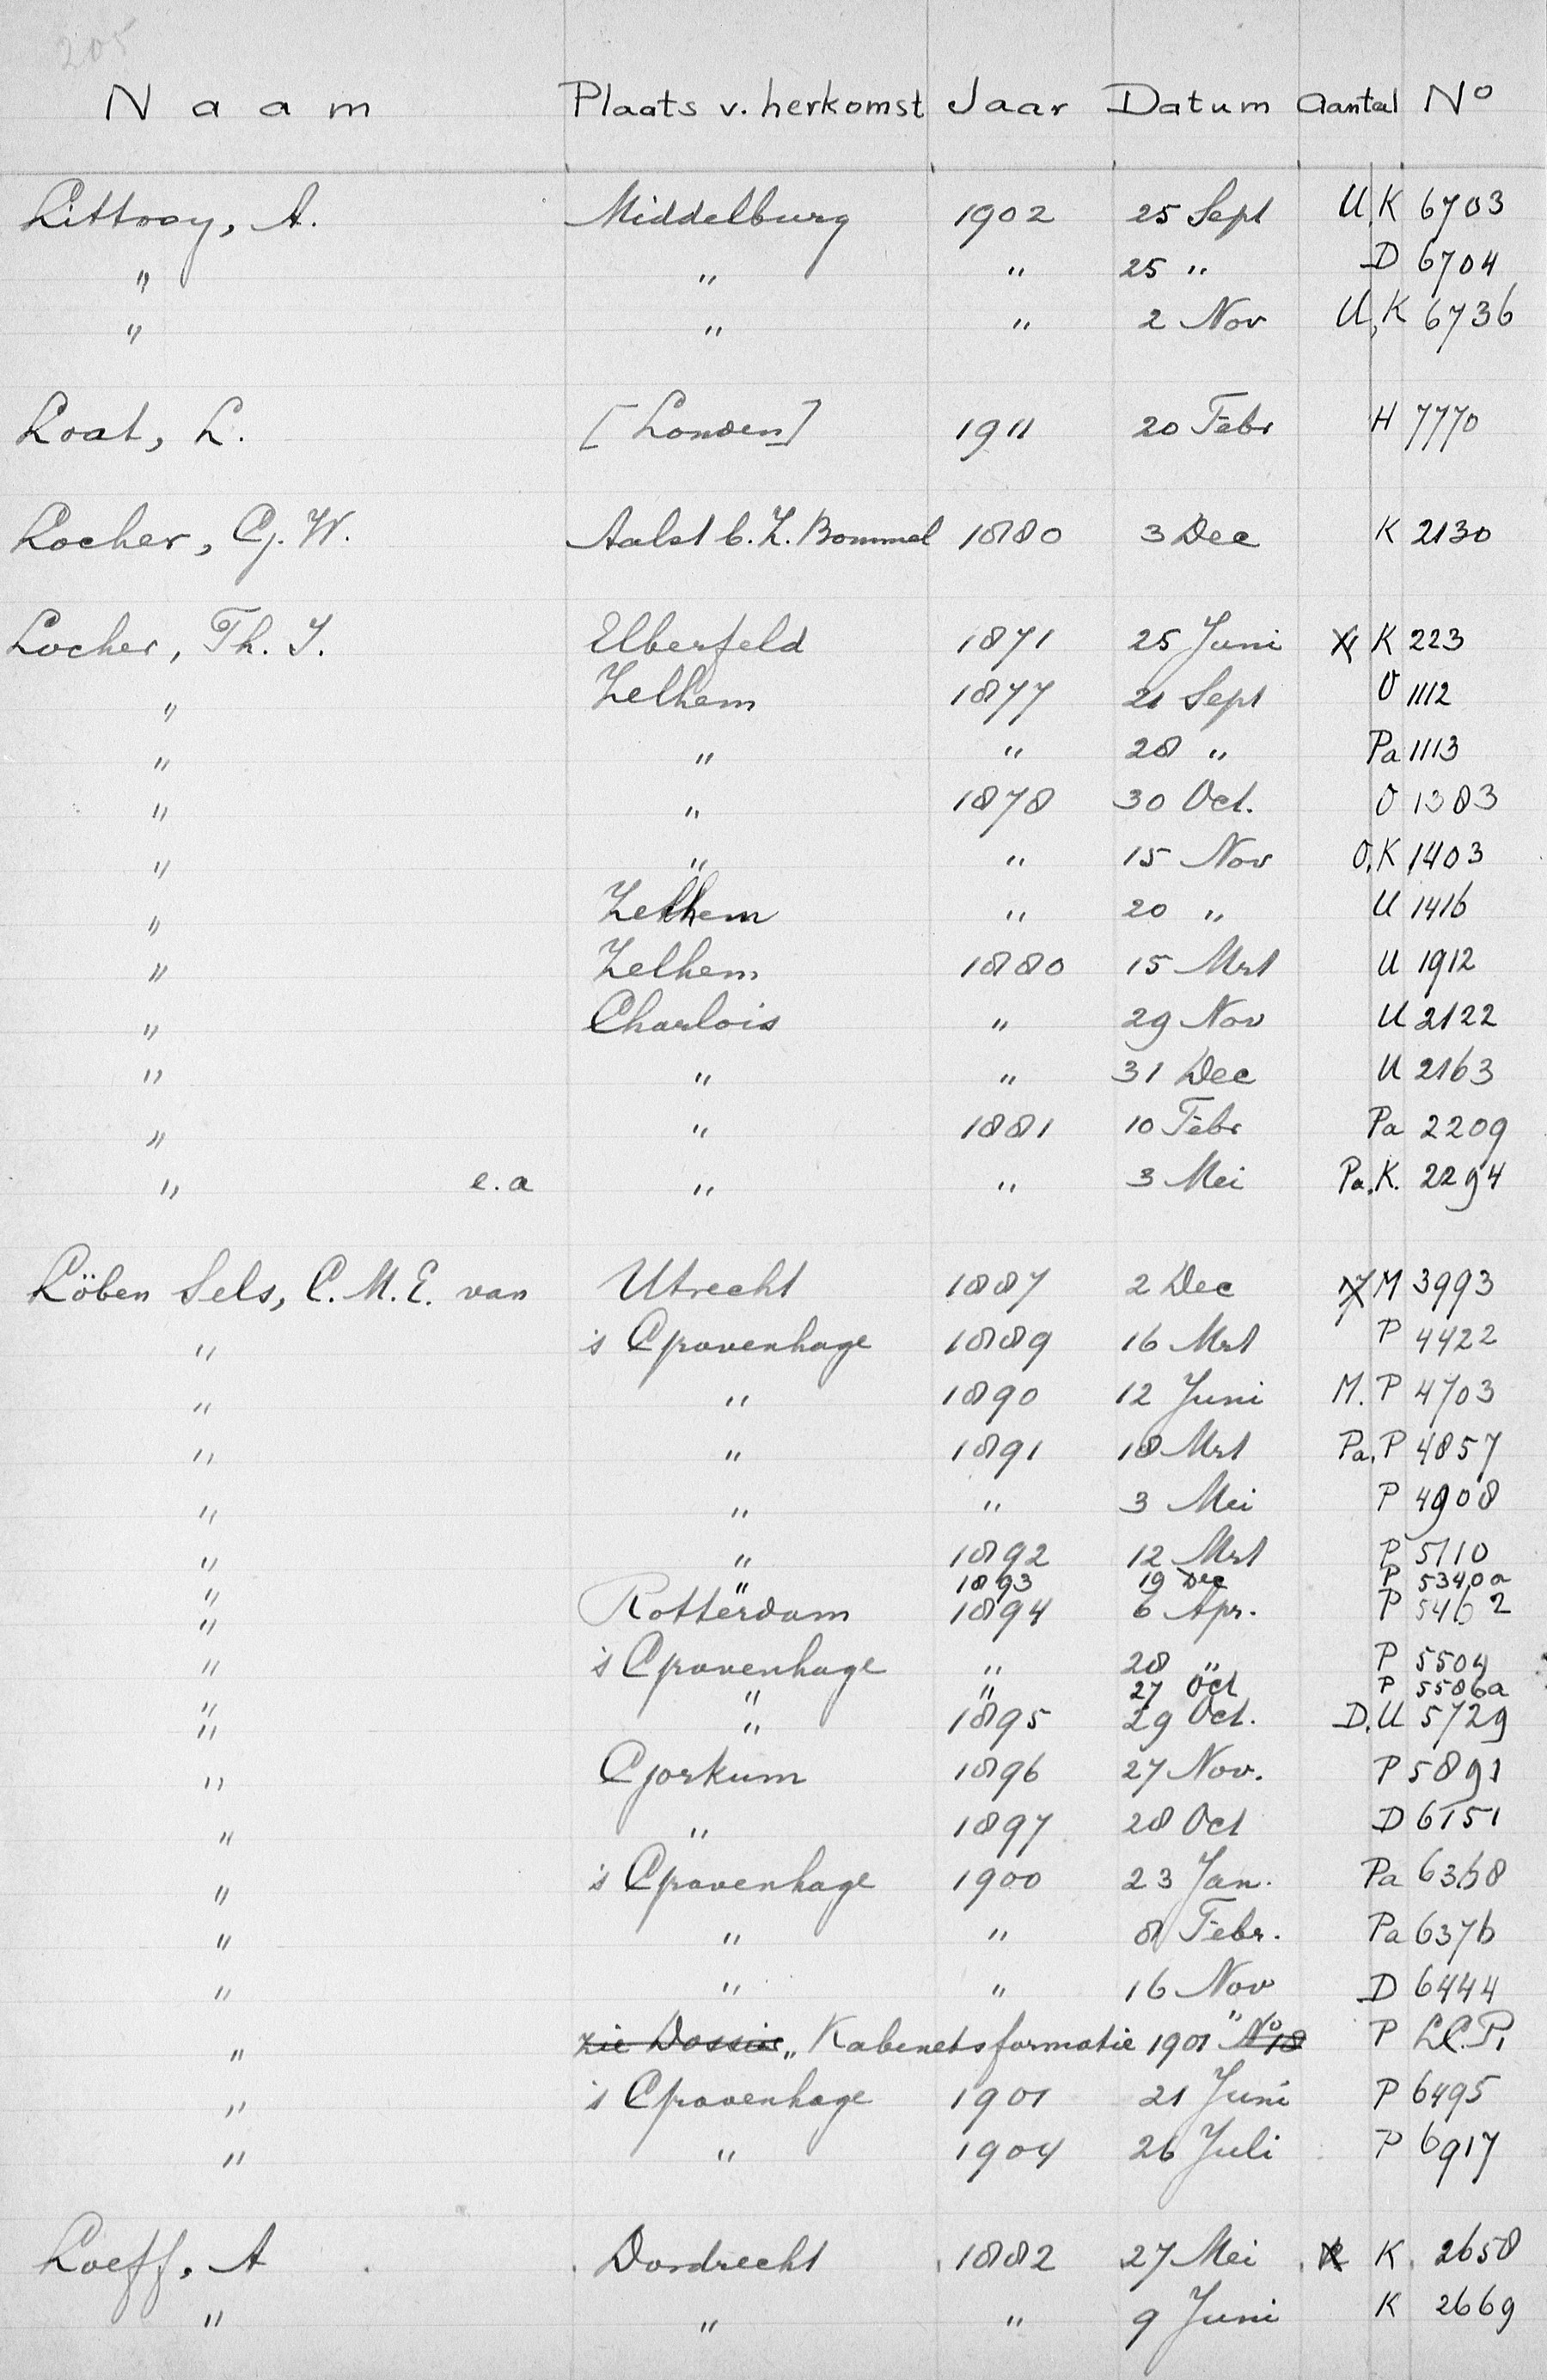 205
Naam Plaats v. herkomst Jaar Datum Aantal No
Littooy, A. Middelburg 1902 25 Sept U,K 6703
" " " 25 " D 6704
" " " 2 Nov U,K 6736
Loat, L. [Londen] 1911 20 Febr H 7770
Locher, G.W. Aalst b. Z. Bommel 1880 3 Dec K 2130
Locher, Th. J. Elberfeld 1871 25 Juni K 223
" Zelhem 1877 21 Sept O 1112
" " " 28 " Pa 1113
" " 1878 30 Oct. O 1383
" " " 15 Nov O.K 1403
" Zelhem " 20 " U 1416
" Zelhem 1880 15 Mrt U 1912
" Charlois " 29 Nov U 2122
" " " 31 Dec U 2163
" " 1881 10 Febr Pa 2209
" e.a " " 3 Mei Pa.K. 2294
Löben Sels, C.M.E. van Utrecht 1887 2 Dec M 3993
" 's Gravenhage 1889 16 Mrt P 4422
" " 1890 12 Juni M.P 4703
" " 1891 18 Mrt Pa.P 4857
" " " 3 Mei P 4908
" " 1892 12 Mrt P 5110
" " 1893 19 Dec P 5340a
" Rotterdam 1894 6 Apr. P 5462
" 's Gravenhage " 28 " P 5504
" " " 27 Oct P 5586a
" " 1895 29 Oct. D.U 5729
" Gorkum 1896 27 Nov. P 5891
" " 1897 28 Oct D 6151
" 's Gravenhage 1900 23 Jan. Pa 6368
" " " 8 Febr. Pa 6376
" " " 16 Nov D 6444
" zie Dossier „Kabinetsformatie 1901" No 18 P L.C.P.
" 's Gravenhage 1901 21 Juni P 6495
" " 1904 26 Juli P 6917
Loeff, A Dordrecht 1882 27 Mei K 2658
" " " 9 Juni K 2669